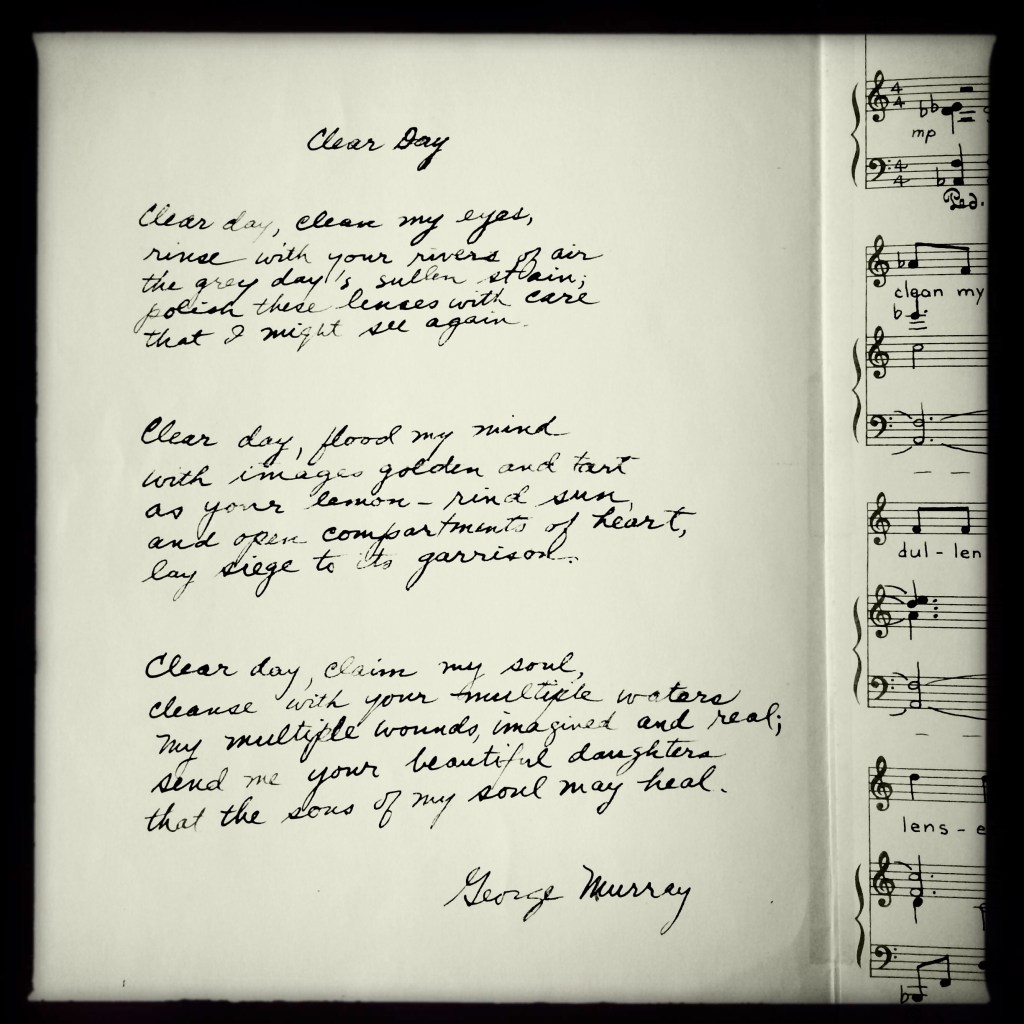 Clear Day
Clear day, clean my eyes,
rinse with your rivers of air
the grey day's sullen stain;
polish these lenses with care
that I might see again.
Clear day, flood my mind
with images golden and tart
as your lemon-rind sun,
and open compartments of heart,
lay siege to its garrison.
Clear day, claim my soul,
cleanse with your multiple waters
my multiple wounds, imagined and real;
send me your beautiful daughters
that the sons of my soul may heal.
George Murray
4 4
mp
4 4
Ped.
clean my
dul-len
lens-e